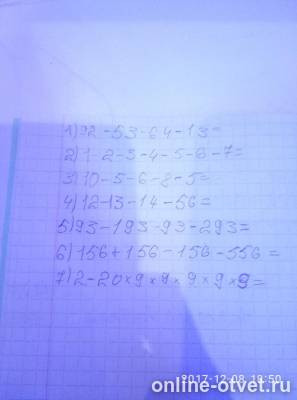 1) 92-53-64-13=
2) 1-2-3-4-5-6-7=
3) 10-5-6-8-5=
4) 12-13-14-56=
5) 93-193-93-293=
6) 156+156-156-556=
7) 2-20×9×9×9×9×9=
2017-12-08 18:50
online-otvet.ru